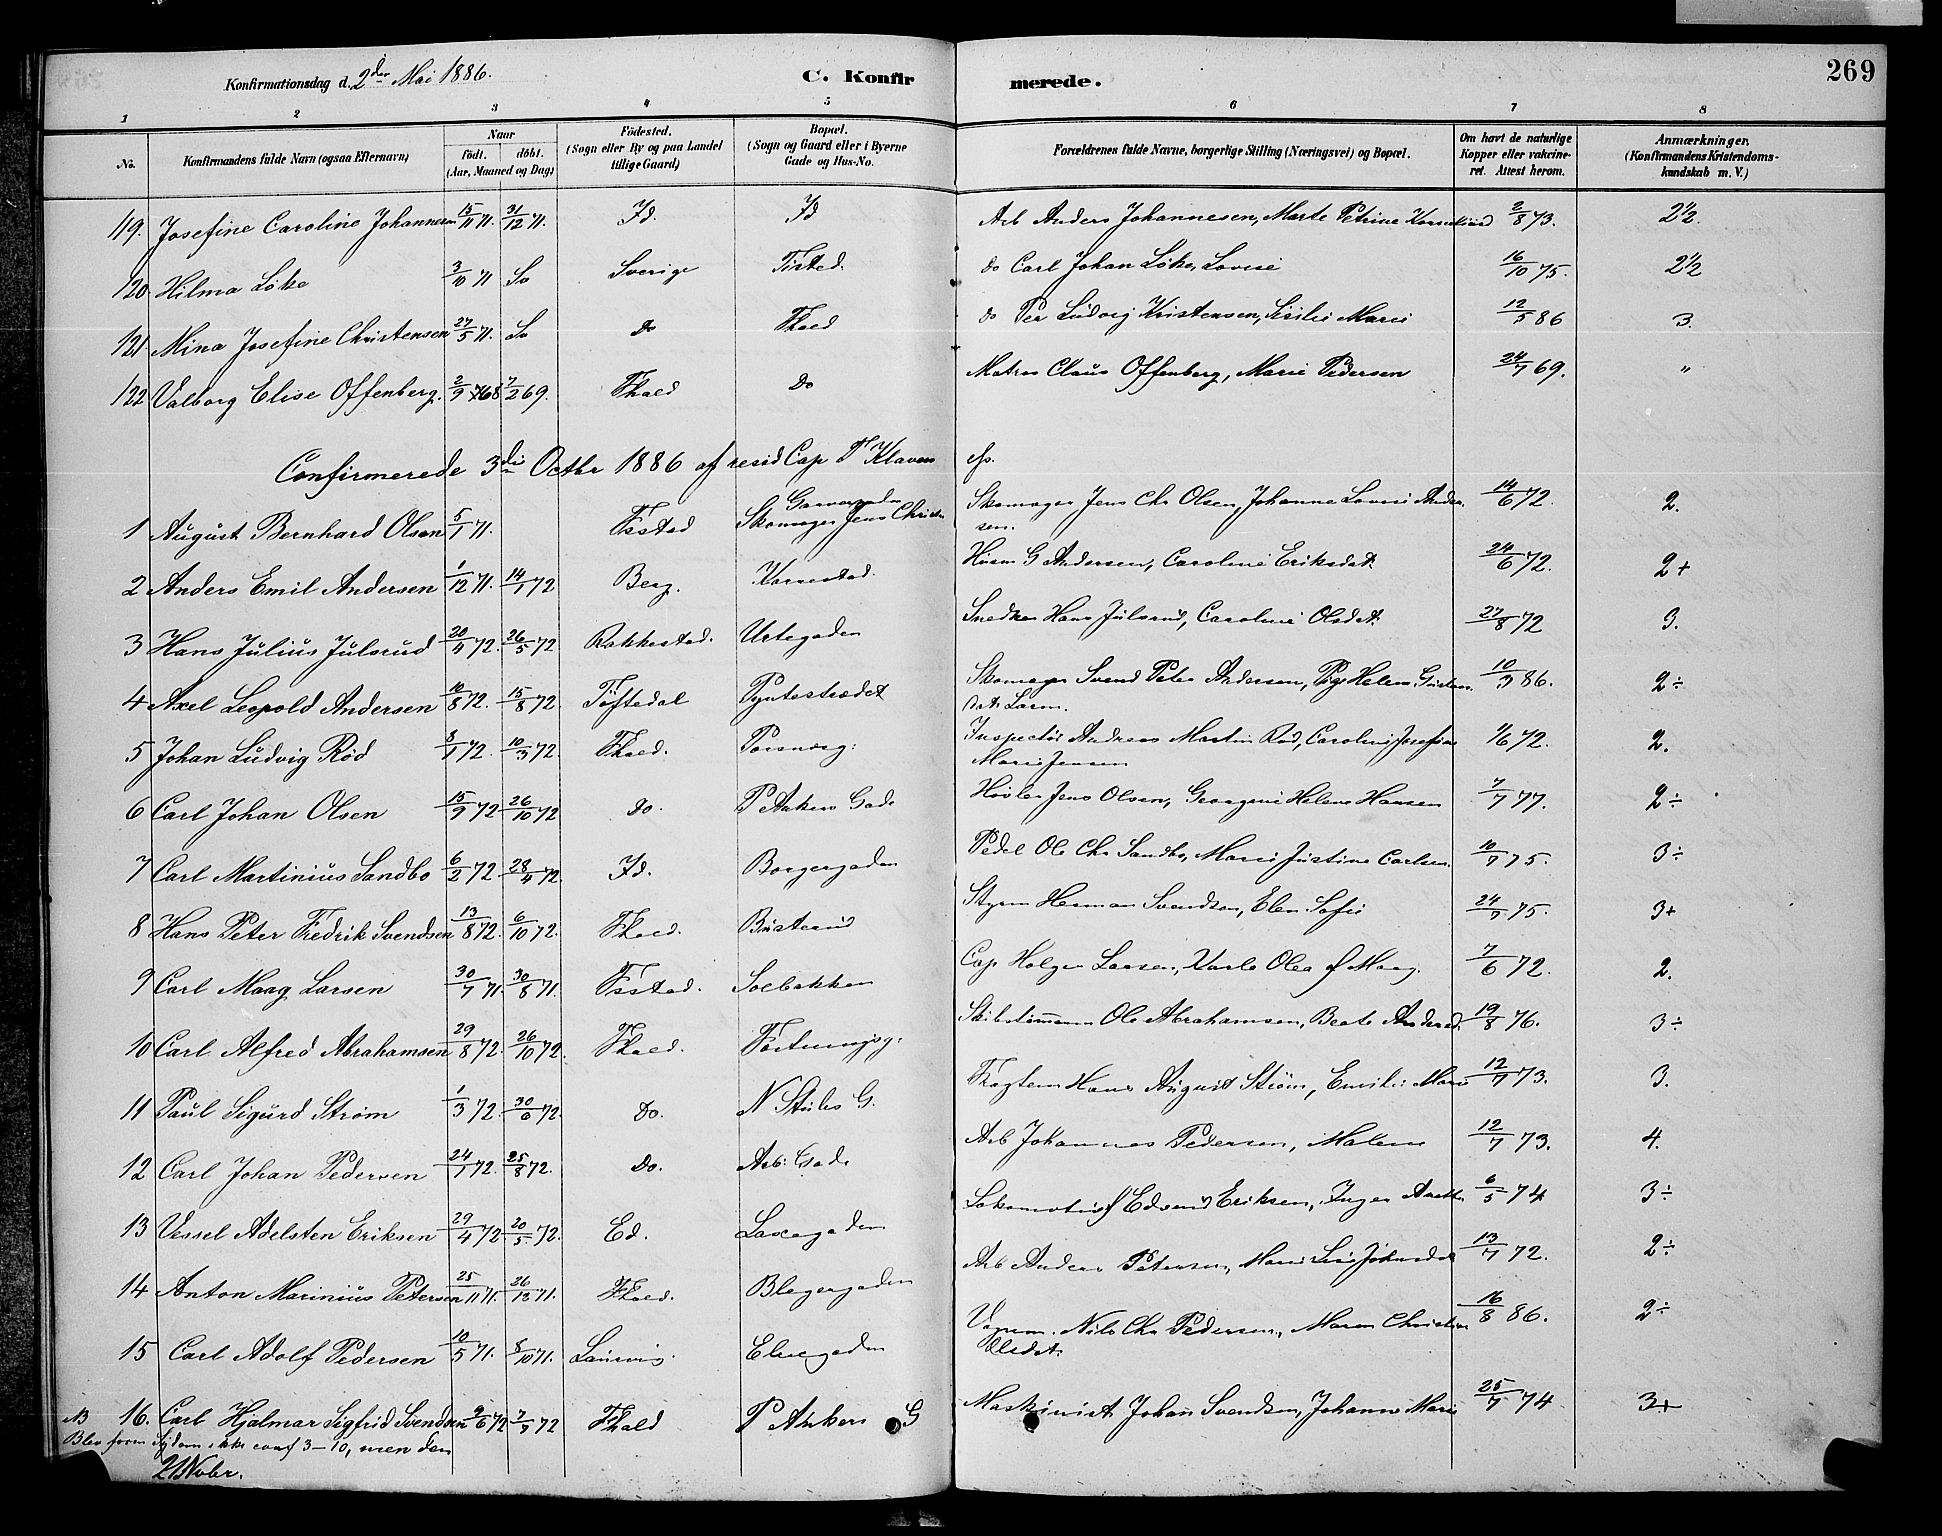 269
Konfirmationsdag d. 2den Mai 1886. C. Konfirmerede.
1 2 3 4 5 6 7 8
No. Konfirmandens fulde Navn (ogsaa Efternavn) Naar født. døbt. (Aar, Maaned og Dag) Födested. (Sogn eller By og paa Landet tillige Gaard) Bopæl. (Sogn og Gaard eller i Byerne Gade og Hus-No. Forældrenes fulde Navne, borgerlige Stilling (Næringsvei) og Bopæl. Om havt de naturlige Kopper eller vakcineret. Attest herom. Anmærkninger, (Konfirmandens Kristendomskundskab m. V.)
119. Josefine Caroline Johannesen 15/11 71. 31/12 71. Id. Id Arb Anders Johannesen, Marte Petrine 2/8 73. 2½.
120. Hilma Löke 3/10 71 Do Sverige Tisted. do Carl Johan Löke, Lovise 16/10 75. 2½
121. Mina Josefine Christensen 27/5 71. Do do Fhald do Per Ludvig Kristensen, Sisilie Marie 12/3 86 3.
122 Valborg Elise Offenberg. 2/9 68 7/2 69. Fhald Do Matros Claus Offenberg, Marie Pedersen 24/7 69. "
Confirmerede 3die Octbr 1886 af resid Cap Klavenes.
1 August Bernhard Olsen 5/1 71. Skomager Jens Christ Skomager Jens Chr Olsen, Johanne Lovise Andersen. 14/6 72. 2.
2 Anders Emil Andersen 1/12 71. 14/1 72 Berg. Husm G Andersen, Caroline Eriksdat. 24/6 72. 2+
3 Hans Julius Julsrud 20/4 72. 26/5 72 Rakkestad. Urtegaden Snedker Hans Julsrud, Caroline Olsdat. 27/8 72 3.
4 Axel Leopold Andersen 10/8 72. 15/8 72. Töftedal Pyntestrædet Skomager Svend Peter Andersen, Helene 10/3 86. 2÷
5 Johan Ludvig Röd 8/1 72. 10/3 72. Fhald. Inspectör Andreas Martin Röd, Caroline Josefine Marie Jensen 1/6 72. 2.
6 Carl Johan Olsen 15/9 72 26/10 72 do. P Ankers Gade Hövler Jens Olsen, Georgine Helene Hansen 7/7 77. 2÷
7 Carl Martinius Sandbo 6/2 72. 28/4 72. Id. Borgergaden Pedel Ole Chr Sandbo, Marie Justine Carlsen. 10/7 75. 3÷
8 Hans Peter Fredrik Svendsen 13/8 72. 6/10 72. Fhald. Busterud Styrm Herman Svendsen, Elen Sofie 24/7 75. 3+
9 Carl Maag Larsen 30/7 71. 30/8 71. Solbakken Cap Holger Larsen, Karle Olea f Maag. 7/6 72. 2.
10 Carl Alfred Abrahamsen 29/8 72. 26/10 72. Fhald. Fæstningsg. Skibstömmerm Ole Abrahamsen, Beate Andersd. 19/8 76. 3÷
11 Paul Sigurd Ström 1/3 72. Do. N Stubs G. Fragtem Hans August Ström, Emilie Marie 12/7 73. 3.
12 Carl Johan Pedersen 24/1 72. 25/8 72. Do. Arb: Gade Arb Johannes Pedersen, Malene 12/7 73. 4.
13 Vessel Adelsten Eriksen 29/4 72 20/5 72. Ed. Laxegaden Lokomotivf Edvard Eriksen, Inger Anette 6/5 74 3÷
14 Anton Marinius Petersen 25/11 71. 26/12 71. Fhald. Blegergaden Arb Anders Petersen, Marie Lise Johnsdat 13/7 72. 2÷
15 Carl Adolf Pedersen 10/5 71. 8/10 71. Laurvig. Elvegaden Vognm. Nils Chr Pedersen, Maren Christine Olsdat. 16/8 86. 2÷
NB 16. Carl Hjalmar Sigfrid Svendsen 9/6 72 7/7 72 Fhald P Ankers G Maskinist Johan Svendsen, Johanne Marie 25/7 74 3+
Blev form Sygdom ikke conf 3–10, men den
21 Nvbr.